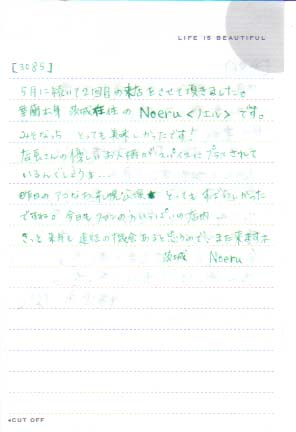 LIFE IS BEAUTIFUL
[3085]
5月に続いて2回目の来店をさせて頂きました。
室蘭出身 茨城在住の Noeru<ノエル>です。
みそなっち とっても美味しかったです!
店長さんの優しいお人柄がスパイスにプラスされて
いるんでしょうネ…
昨日の 札幌公演 とっても楽しかった
ですねが 今日も ファンの いっぱいの店内
きっと来年も 遠征の機会あると思うので、また来ます
茨城 Noeru
◂CUT OFF